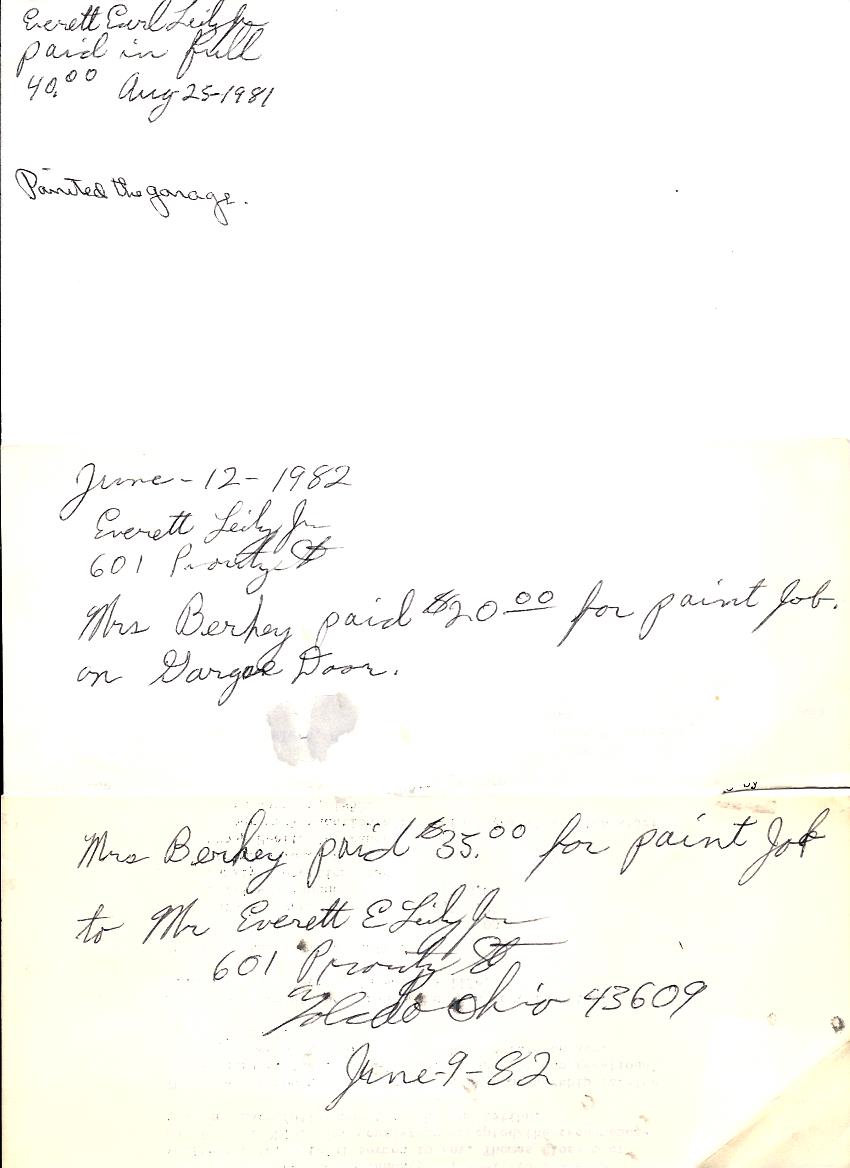 Everett Earl Leily Jr
paid in full
40.00 Aug 25-1981
Painted the garage.
June-12-1982
Everett Leily Jr
601 Prouty St
Mrs Berkey paid $20.00 for paint Job.
on Gargae Door.
Mrs Berkey paid $35.00 for paint Job
to Mr Everett E Leily Jr
601 Prouty St
Toledo Ohio 43609
June-9-82